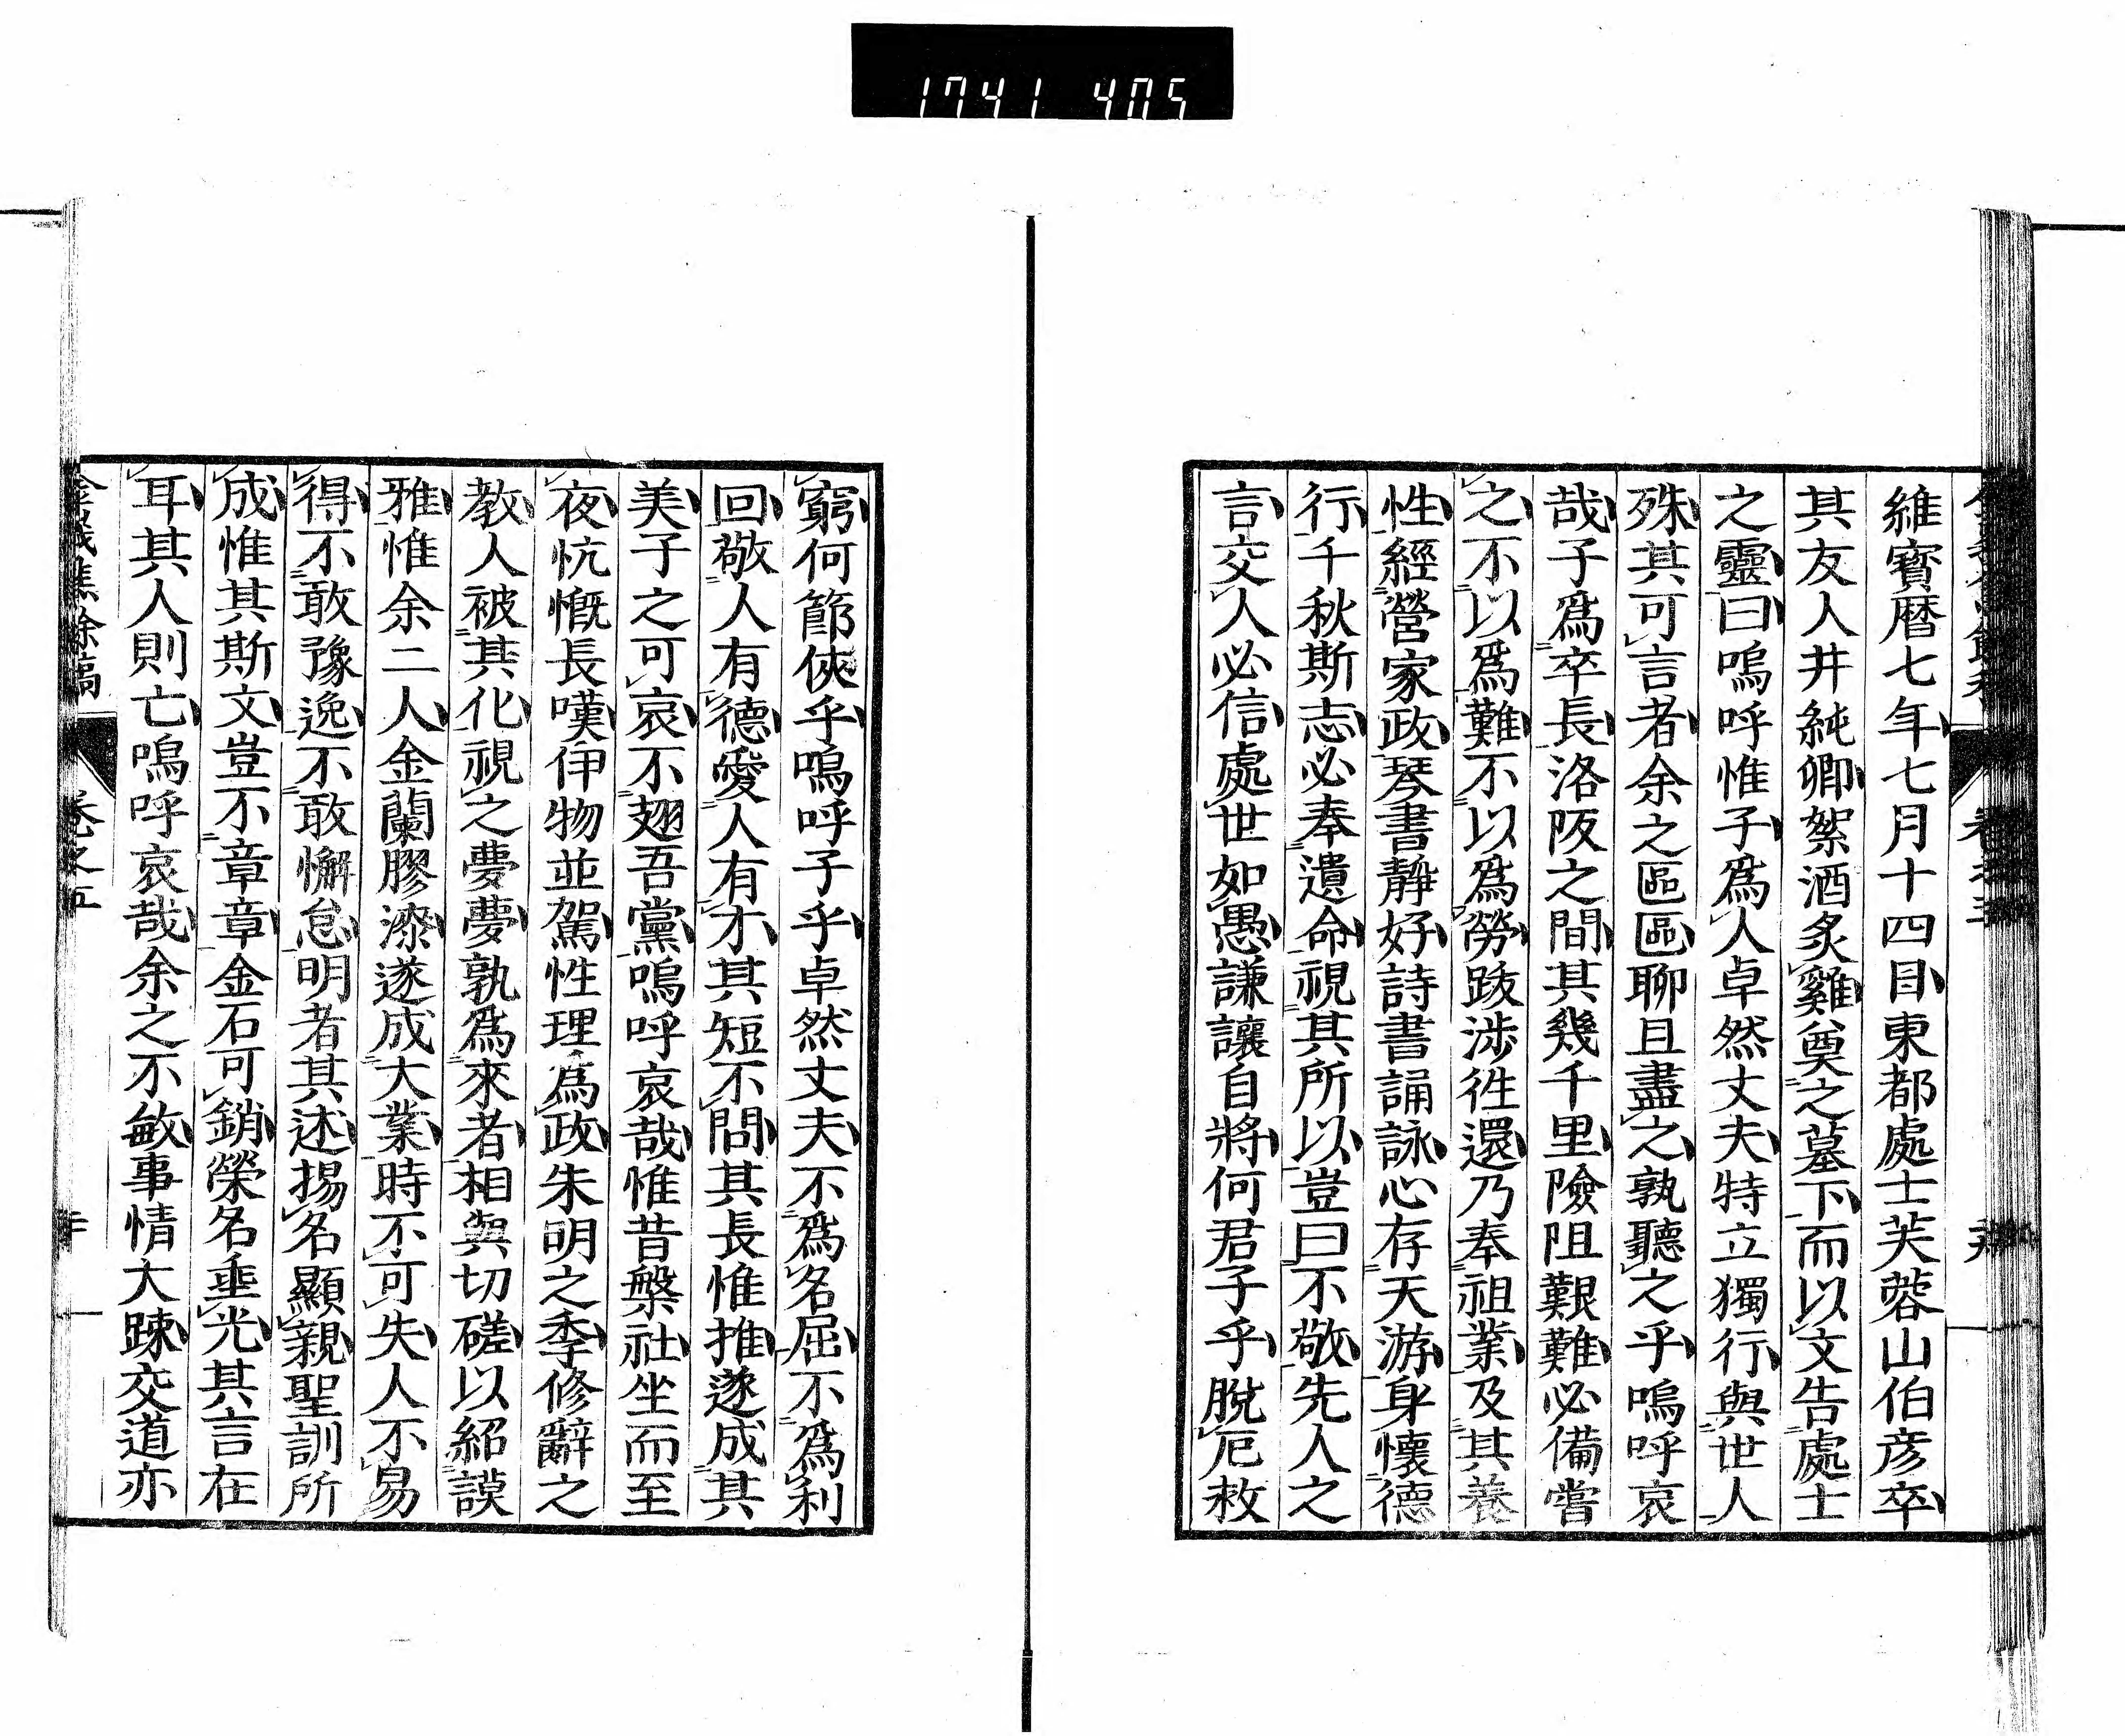 1741 405
維寳暦七年七月十四日東都處士芙蓉山伯彦卒
其友人井純卿絮酒炙雞奠之墓下而以文告處士
之靈曰嗚呼惟子爲人卓然丈夫特立獨行與世人
殊其可言者余之區區聊且盡之孰聽之乎嗚呼哀
哉子爲卒長洛阪之間其幾千里險阻艱難必備嘗
之不以爲難不以爲勞跋涉徃還乃奉祖業及其養
性經營家政琴書静好詩書誦詠心存天游身懷德
行千秋斯志必奉遺命視其所以豈曰不敬先人之
言交人必信處世如愚謙讓自將何君子乎脫厄救
窮何節俠乎嗚呼子乎卓然丈夫不爲名屈不爲利
回敬人有德愛人有才其短不問其長惟推遂成其
美子之可哀不翅吾黨嗚呼哀哉惟昔槃社坐而至
夜忼慨長嘆伊物並駕性理爲政朱明之季修辭之
教人被其化視之夢夢孰爲來者相與切磋以紹謨
雅惟余二人金蘭膠漆遂成大業時不可失人不易
得不敢豫逸不敢懈怠明者其述揚名顯親聖訓所
成惟其斯文豈不章章金石可銷榮名垂光其言在
耳其人則亡嗚呼哀哉余之不敏事情大踈交道亦
餘稿 卷之五